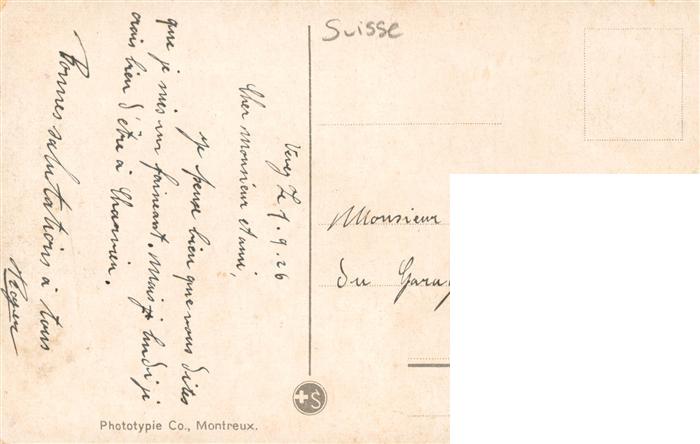 Suisse
Vevey le 1.9.26
Cher Monsieur et ami,
je pense bien que vous dites
que je suis un fainéant. Mais lundi je
crois bien d'être à
Bonnes salutations à tous
Roger
Monsieur
du
Phototypie Co., Montreux.